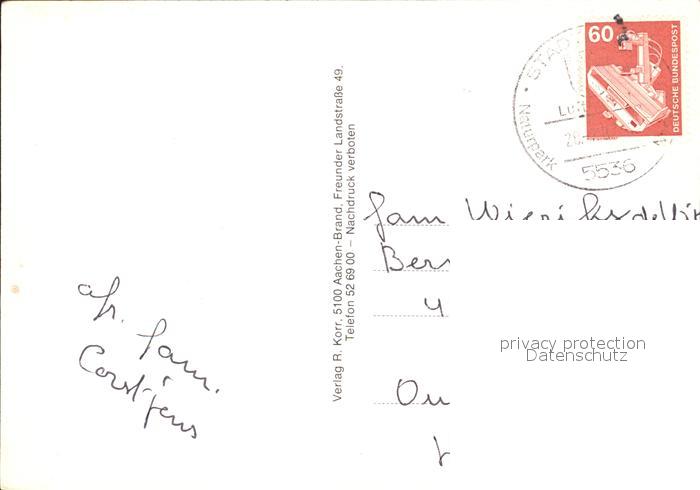 60
DEUTSCHE BUNDESPOST
STAD
Naturpark
5536
Verlag R. Korr, 5100 Aachen-Brand, Freunder Landstraße 49.
Telefon 52 69 00 – Nachdruck verboten
fam
Ber
4
Ou
privacy protection
Datenschutz
afz. fam.
Corstjens